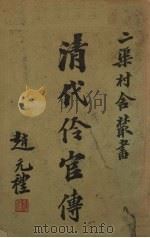 二渠村舍叢書
清代伶官傳
趙元禮